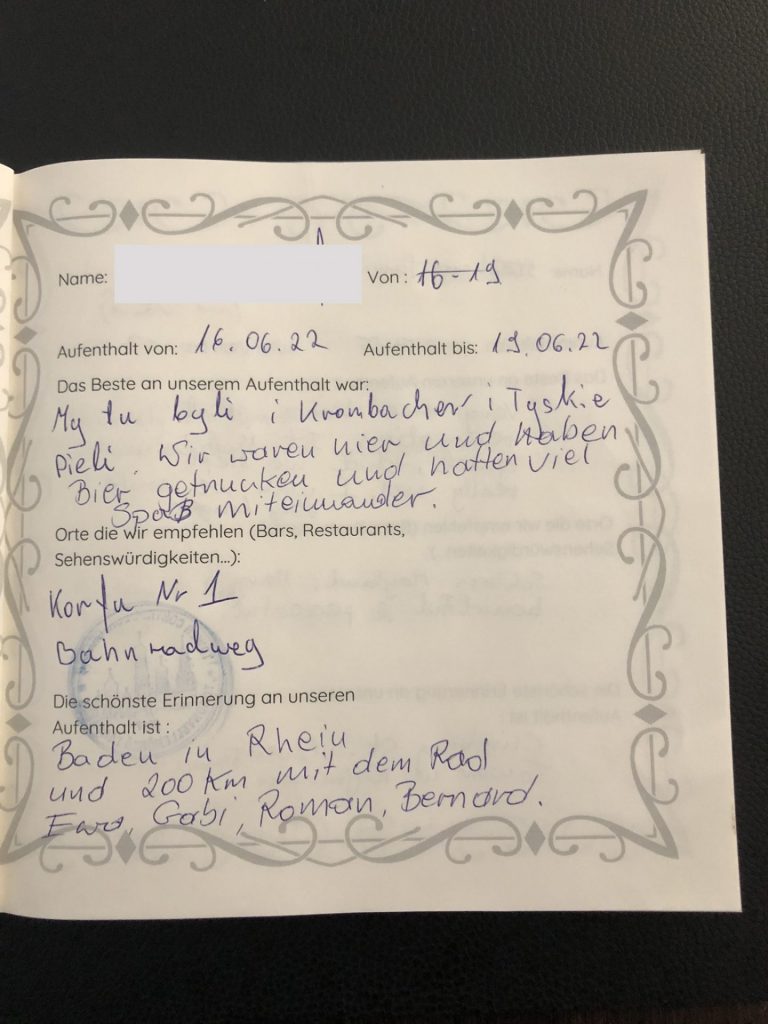 Name: Von : 16-19
Aufenthalt von: 16.06.22 Aufenthalt bis: 19.06.22
Das Beste an unserem Aufenthalt war:
My tu byli i Krombacher i Tyskie
pieli. Wir waren hier und haben
Bier getrunken und hatten viel
Spaß miteinander.
Orte die wir empfehlen (Bars, Restaurants,
Sehenswürdigkeiten...):
Korfu Nr 1
Bahnradweg
Die schönste Erinnerung an unseren
Aufenthalt ist :
Baden in Rhein
und 200 Km mit dem Rad
Ewa, Gabi, Roman, Bernard.